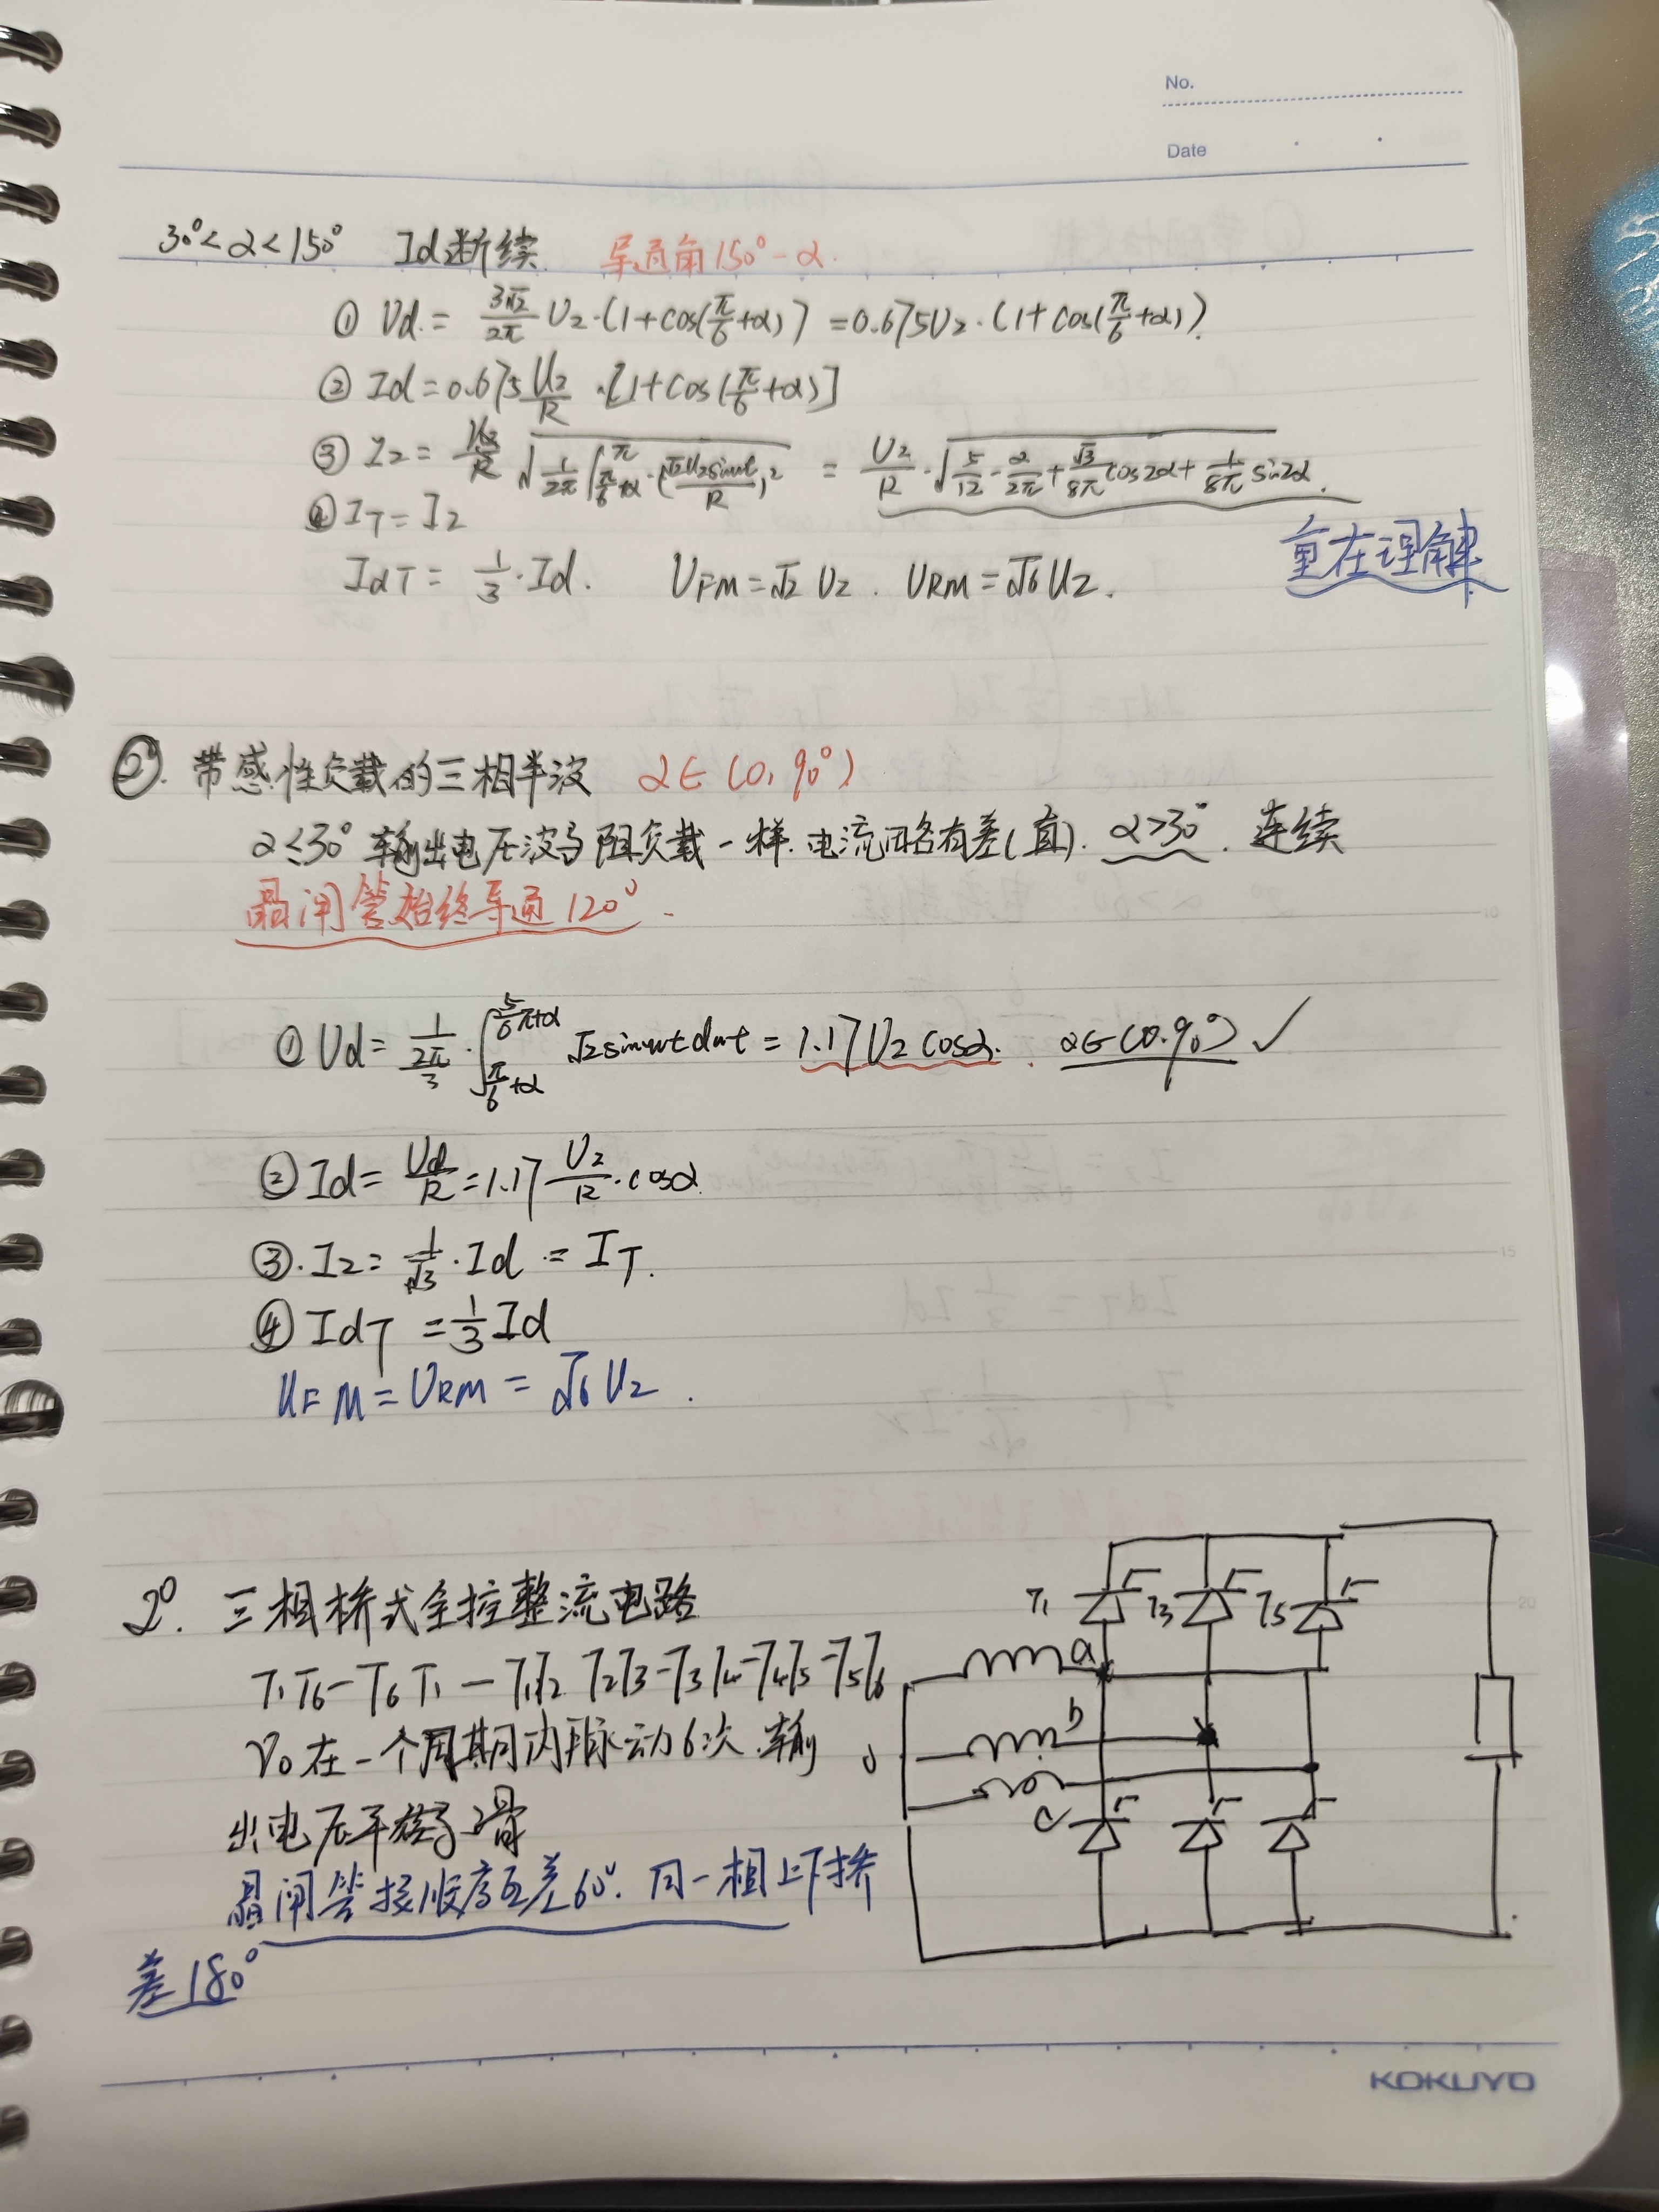 No.
Date
30°<α<150° Id断续 导通角150°-α.
① Ud = 3√2/2π U2·(1+cos(π/6+α)) = 0.675U2·(1+cos(π/6+α)).
② Id = 0.675 U2/R ·[1+cos(π/6+α)]
③ I2 = √(1/2π ∫_{π/6+α}^{π} (√2U2sinωt/R)²) = U2/R·√(5/12 - α/2π + √3/8π cos2α + 1/8π sin2α).
④ IT = I2
IdT = 1/3·Id. UFM = √2 U2. URM = √6 U2.
重在理解
②. 带感性负载的三相半波 α∈(0, 90°)
α≤30° 输出电压波与阻负载一样. 电流略有差(直). α>30°. 连续
晶闸管始终导通120°.
① Ud = 1/(2π/3)·∫_{π/6+α}^{5/6π+α} √2sinωtdωt = 1.17U2cosα. α∈(0.90°) ✓
② Id = Ud/R = 1.17 U2/R·cosα.
③. I2 = 1/√3·Id = IT.
④ IdT = 1/3 Id
UFM = URM = √6 U2.
2°. 三相桥式全控整流电路
T1T6-T6T1-T1T2 T2T3-T3T4-T4T5-T5T6
V0在一个周期内脉动6次.输
出电压平滑
晶闸管按顺序互差60°. 同一相上下桥
差180°
T1 T3 T5
a
b
c
KOKUYO